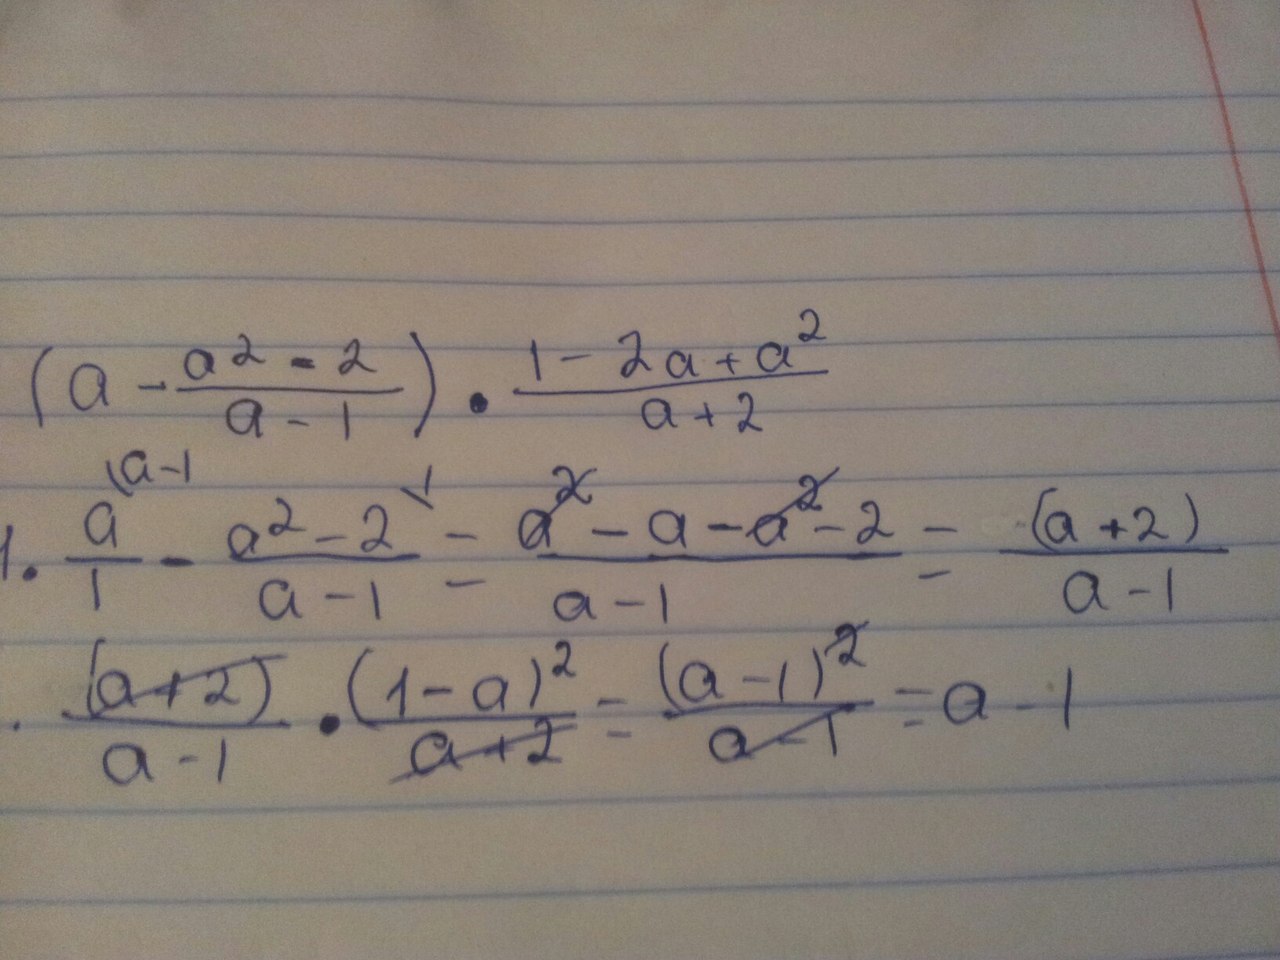 (a - \frac{a^2 - 2}{a - 1}) • \frac{1 - 2a + a^2}{a + 2}
1. \frac{a^{(a-1}}{1} - \frac{a^2 - 2}{a - 1} = \frac{a^2 - a - a^2 - 2}{a - 1} = \frac{(a + 2)}{a - 1}
. \frac{(a + 2)}{a - 1} • \frac{(1 - a)^2}{a + 2} = \frac{(a - 1)^2}{a - 1} = a - 1